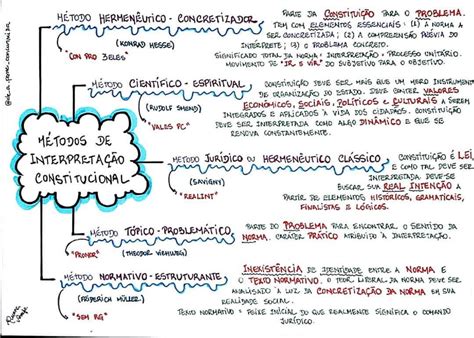 MÉTODOS DE
INTERPRETAÇÃO
CONSTITUCIONAL
MÉTODO HERMENÊUTICO-CONCRETIZADOR
(KONRAD HESSE)
"CON PRO 3ELES"
PARTE DA CONSTITUIÇÃO PARA O PROBLEMA.
TEM COM ELEMENTOS ESSENCIAIS: (1) A NORMA A
SER CONCRETIZADA; (2) A COMPREENSÃO PRÉVIA DO
INTÉRPRETE; 3) O PROBLEMA CONCRETO.
SIGNIFICADO TOTAL DA NORMA: INTERPRETAÇÃO + PROCESSO UNITÁRIO.
MOVIMENTO DE "IR E VIR" DO SUBJETIVO PARA O OBJETIVO.
MÉTODO CIENTÍFICO-ESPIRITUAL
(RUDOLF SMEND)
"VALES PC"
CONSTITUIÇÃO DEVE SER MAIS QUE UM MERO INSTRUMENTO
DE ORGANIZAÇÃO DO ESTADO. DEVE CONTER VALORES
ECONÔMICOS, SOCIAIS, POLÍTICOS E CULTURAIS A SEREM
INTEGRADOS E APLICADOS À VIDA DOS CIDADÃOS. CONSTITUIÇÃO
DEVE SER INTERPRETADA COMO ALGO DINÂMICO E QUE SE
RENOVA CONSTANTEMENTE.
MÉTODO JURÍDICO OU HERMENÊUTICO CLÁSSICO
(SAVIGNY)
"REALINT"
CONSTITUIÇÃO É LEI,
E COMO TAL DEVE SER
INTERPRETADA. DEVE-SE
BUSCAR SUA REAL INTENÇÃO A
PARTIR DE ELEMENTOS HISTÓRICOS, GRAMATICAIS,
FINALISTAS E LÓGICOS.
MÉTODO TÓPICO-PROBLEMÁTICO
(THEODOR VIEHWEG)
"PRONOR"
PARTE DO PROBLEMA PARA ENCONTRAR O SENTIDO DA
NORMA. CARÁTER PRÁTICO ATRIBUÍDO À INTERPRETAÇÃO.
MÉTODO NORMATIVO-ESTRUTURANTE
(FRIEDERICH MÜLLER)
"SEM RG"
INEXISTÊNCIA DE IDENTIDADE ENTRE A NORMA E
O TEXTO NORMATIVO. O TEOR LITERAL DA NORMA DEVE SER
ANALISADO À LUZ DA CONCRETIZAÇÃO DA NORMA EM SUA
REALIDADE SOCIAL.
TEXTO NORMATIVO = FEIXE INICIAL DO QUE REALMENTE SIGNIFICA O COMANDO
JURÍDICO.